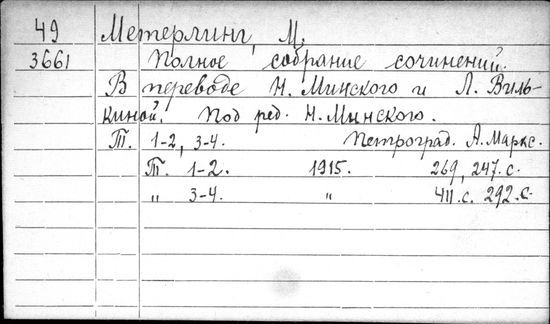 49 Метерлинг, М.
3661 Полное собрание сочинений.
В переводе Н. Минского и Л. Виль-
киной. Под ред. Н. Минского.
Т. 1-2, 3-4. Петроград. А. Маркс.
Т. 1-2. 1915. 269, 247 с.
" 3-4. " 411 с. 292 с.